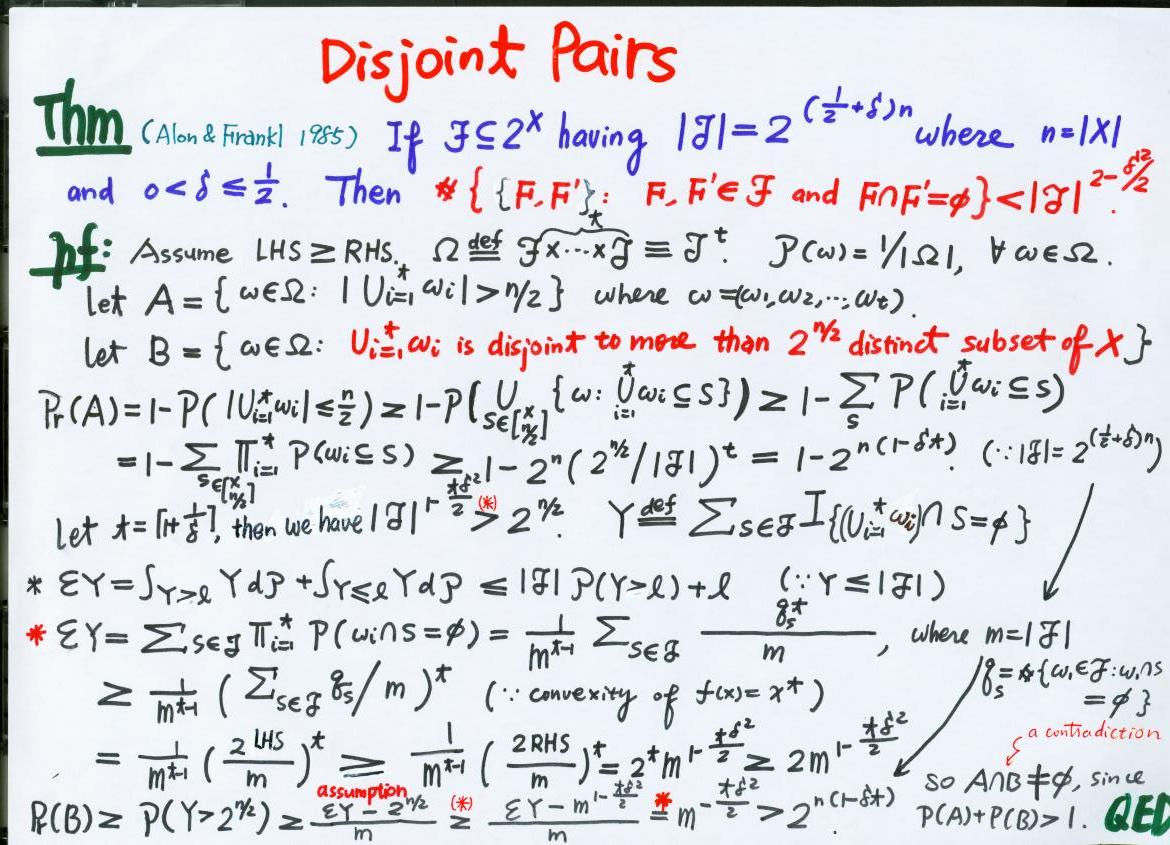 Disjoint Pairs
Thm (Alon & Frankl 1985) If ℱ ⊆ 2^X having |ℱ| = 2^{(1/2+δ)n} where n=|X|
and 0<δ≤1/2. Then #{ {F,F'}: F,F'∈ℱ and F∩F'=ϕ} < |ℱ|^{2-δ²/2}.
pf: Assume LHS ≥ RHS. Ω ≝ ℱ×···×ℱ (t) ≡ ℱ^t. P(ω)=1/|Ω|, ∀ω∈Ω.
let A = {ω∈Ω: |∪_{i=1}^t ω_i| > n/2} where ω=(ω_1,ω_2,…,ω_t).
let B = {ω∈Ω: ∪_{i=1}^t ω_i is disjoint to more than 2^{n/2} distinct subset of X}
Pr(A) = 1-P(|∪_{i=1}^t ω_i| ≤ n/2) ≥ 1-P(∪_{S∈[X n/2]} {ω: ∪_{i=1}^t ω_i ⊆ S}) ≥ 1-∑_S P(∪_{i=1}^t ω_i ⊆ S)
= 1-∑_{S∈[X n/2]} ∏_{i=1}^t P(ω_i ⊆ S) ≥ 1-2^n(2^{n/2}/|ℱ|)^t = 1-2^{n(1-δt)}. (∵|ℱ|=2^{(1/2+δ)n})
let t=⌈1+1/δ⌉, then we have |ℱ|^{1-tδ²/2} >^{(*)} 2^{n/2}. Y ≝ ∑_{S∈ℱ} I{(∪_{i=1}^t ω_i)∩S=ϕ}
* EY = ∫_{Y>l} Y dP + ∫_{Y≤l} Y dP ≤ |ℱ| P(Y>l)+l (∵ Y≤|ℱ|)
* EY = ∑_{S∈ℱ} ∏_{i=1}^t P(ω_i∩S=ϕ) = 1/m^{t-1} ∑_{S∈ℱ} q_s^t/m, where m=|ℱ|
q_s=#{ω_1∈ℱ: ω_1∩S
=ϕ}
≥ 1/m^{t-1} (∑_{S∈ℱ} q_s/m)^t (∵ convexity of f(x)=x^t)
= 1/m^{t-1} (2LHS/m)^t ≥ 1/m^{t-1} (2RHS/m)^t = 2^t m^{1-tδ²/2} ≥ 2m^{1-tδ²/2}
assumption
Pr(B) ≥ P(Y>2^{n/2}) ≥ (EY-2^{n/2})/m ≥^{(*)} (EY-m^{1-tδ²/2})/m ≥^{*} m^{-tδ²/2} > 2^{n(1-δt)}.
a contradiction
so A∩B≠ϕ, since
P(A)+P(B)>1. QED